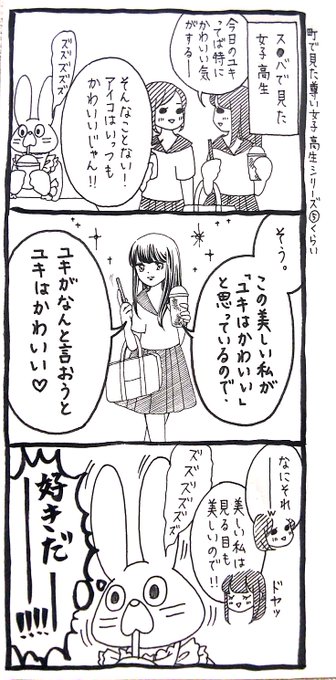 町で見た尊い女子高生シリーズ⑤くらい
ス●バで見た
女子高生
今日のユキ
ってば特に
かわいい気
がするー
そんなことないー!
アイコはいつも
かわいいじゃん!!
ズズズズズ
そう。
この美しい私が
「ユキはかわいい」
と思っているので
ユキがなんと言おうと
ユキはかわいい♡
なにそれー
美しい私は
見る目も
美しいので!!
ドヤッ
ズズズズズズ
好きだ
ー!!!!